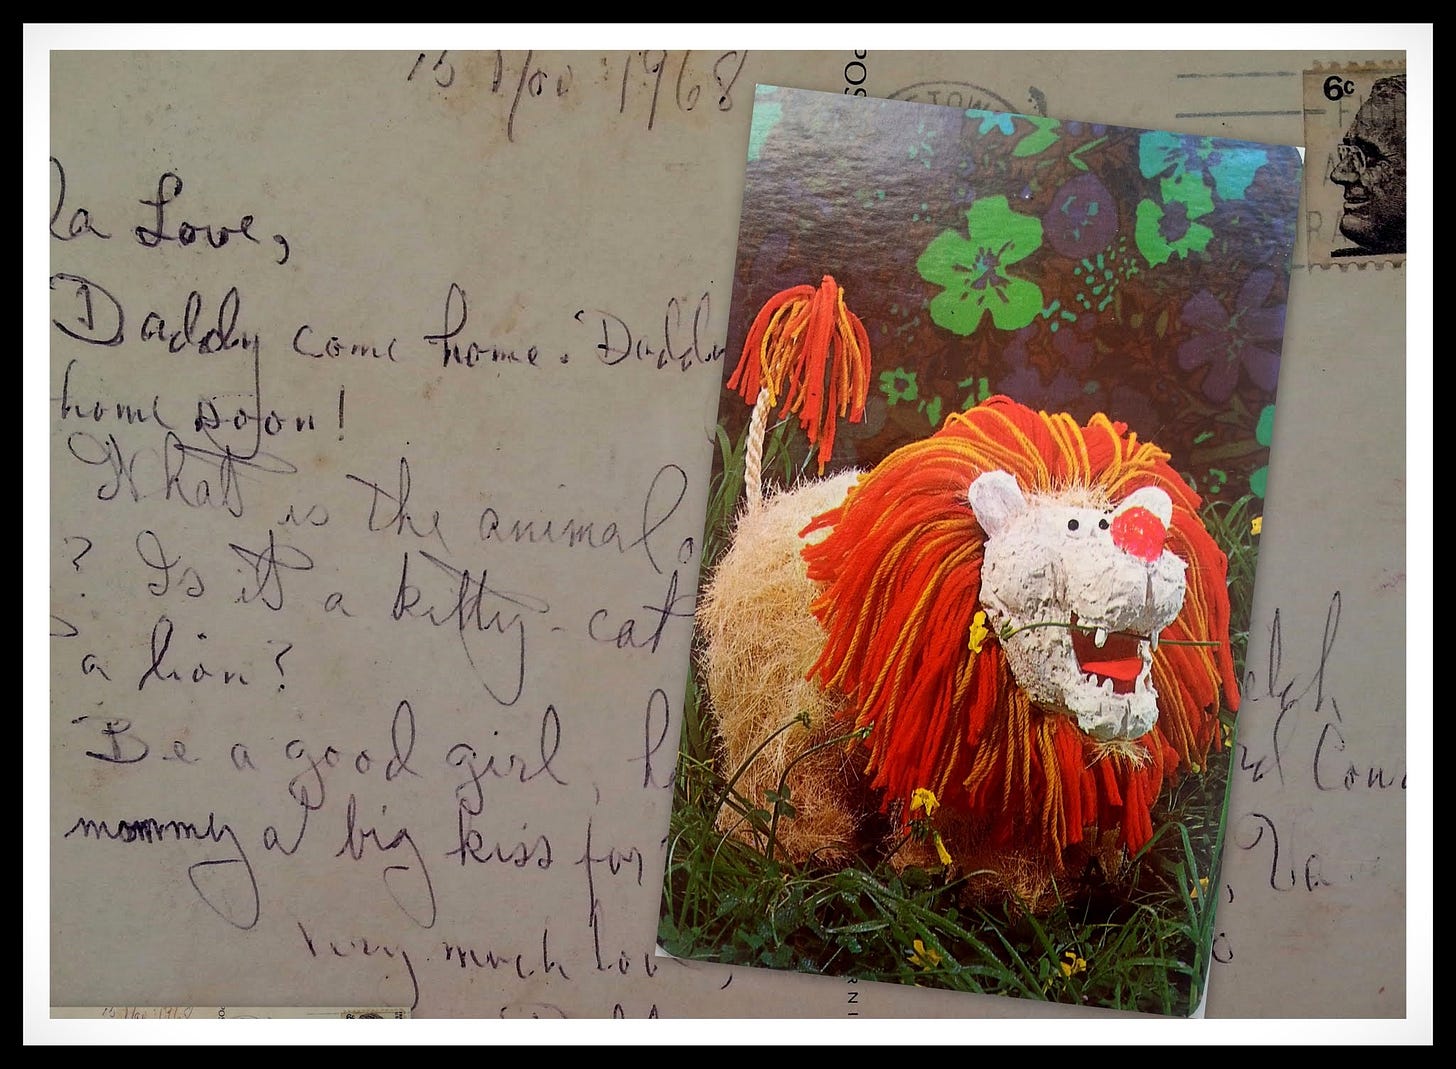 15 Nov 1968
6c
la Love,
Daddy come home. Daddy
home soon!
What is the animal
? Is it a kitty-cat
a lion?
Be a good girl,
mommy a big kiss for
Very much love,
Va